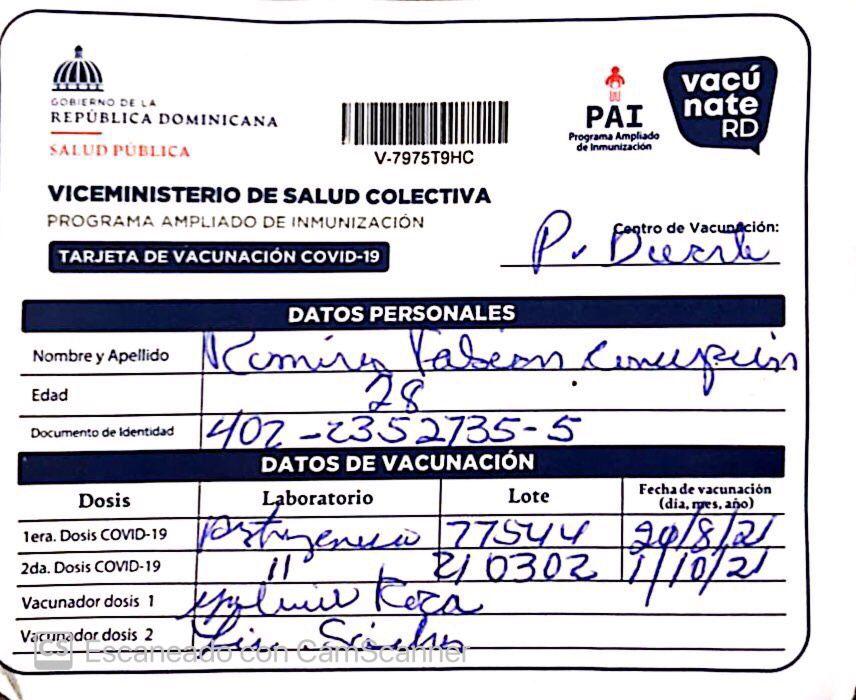 GOBIERNO DE LA
REPÚBLICA DOMINICANA
SALUD PÚBLICA
V-7975T9HC
PAI
Programa Ampliado
de Inmunización
vacú
nate
RD
VICEMINISTERIO DE SALUD COLECTIVA
PROGRAMA AMPLIADO DE INMUNIZACIÓN
TARJETA DE VACUNACIÓN COVID-19
Centro de Vacunación:
P. Duarte
DATOS PERSONALES
Nombre y Apellido Ramirez Fabian Concepción
Edad 28
Documento de Identidad 402-2352735-5
DATOS DE VACUNACIÓN
Dosis Laboratorio Lote Fecha de vacunación
(día, mes, año)
1era. Dosis COVID-19 Astrazeneca 77544 20/8/21
2da. Dosis COVID-19 11 210302 1/10/21
Vacunador dosis 1
Vacunador dosis 2 Sánchez
CS Escaneado con CamScanner